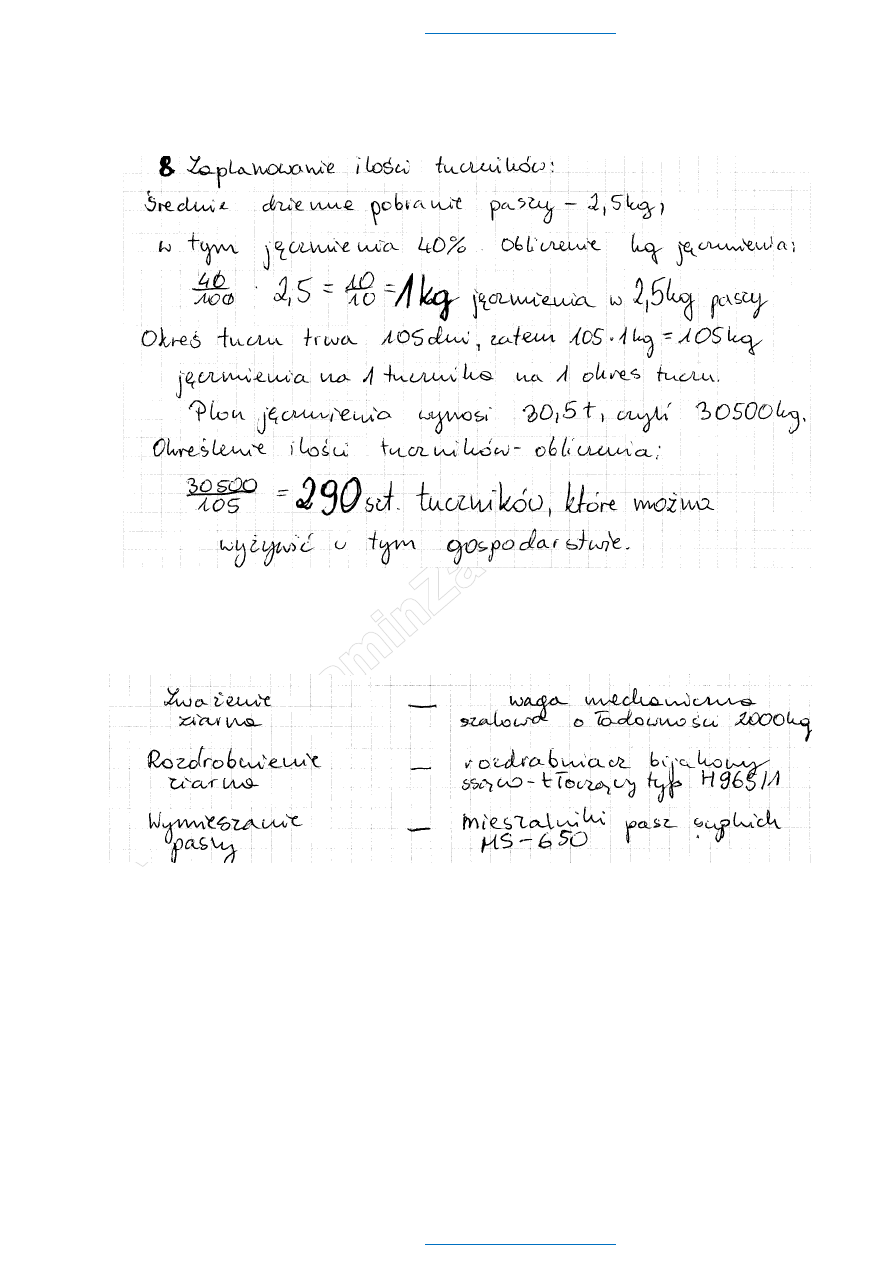 8 Zaplanowanie ilości tuczników:
Średnie dzienne pobranie paszy – 2,5kg,
w tym jęczmienia 40%. Obliczenie kg jęczmienia:
40/100 · 2,5 = 10/10 = 1kg jęczmienia w 2,5kg paszy
Okreś tuczu trwa 105 dni, zatem 105 · 1kg = 105kg
jęczmienia na 1 tucznika na 1 okres tuczu.
Plon jęczmienia wynosi 30,5t, czyli 30500kg.
Określenie ilości tuczników - obliczenia:
30500/105 = 290 szt. tuczników, które można
wyżywić w tym gospodarstwie.
ominZa
Zważenie ziarna — waga mechaniczna
szalowa o ładowności 2000kg
Rozdrobnienie ziarna — rozdrabniacz bijakowy
ssąco-tłoczący typ H965/1
Wymieszanie paszy — mieszalniki pasz sypkich
MS-650